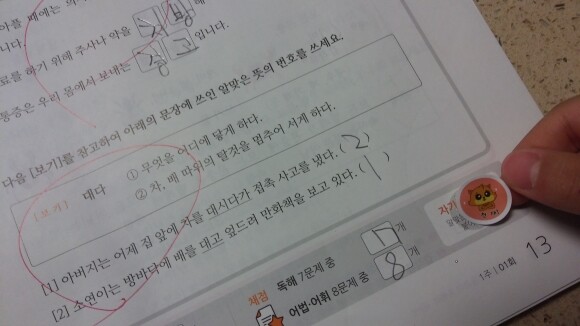 아를 빼에는 의
니다.
료를 하기 위해 주사나 약을 처방 해
통증은 우리 몸에서 보내는 경고 입니다.
다음 [보기]를 참고하여 아래의 문장에 쓰인 알맞은 뜻의 번호를 쓰세요.
[보기] 대다 ① 무엇을 어디에 닿게 하다.
② 차, 배 따위의 탈것을 멈추어 서게 하다.
[1] 아버지는 어제 집 앞에 차를 대시다가 접촉 사고를 냈다. ( 2 )
[2] 소연이는 방바닥에 배를 대고 엎드려 만화책을 보고 있다. ( 1 )
채점 독해 7문제 중 7 개
어법·어휘 8문제 중 8 개
자기
1주 | 01회 13